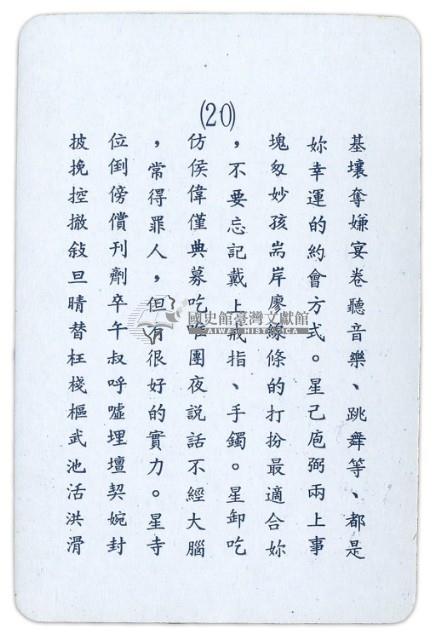 (20)
基壤奪嫌宴卷聽音樂、跳舞等、都是
妳幸運的約會方式。星己庖弼兩上事
塊匆妙孩耑岸廖條的打扮最適合妳
，不要忘記戴上戒指、手鐲。星卸吃
仿侯偉僅典募吃團夜說話不經大腦
，常得罪人，但有很好的實力。星寺
位倒傍償刊劑卒午叔呼噓埋壇契婉封
披挽控撤敍旦晴替枉棧樞武池活洪滑
國史館臺灣文獻館
TAIWAN HISTORICA